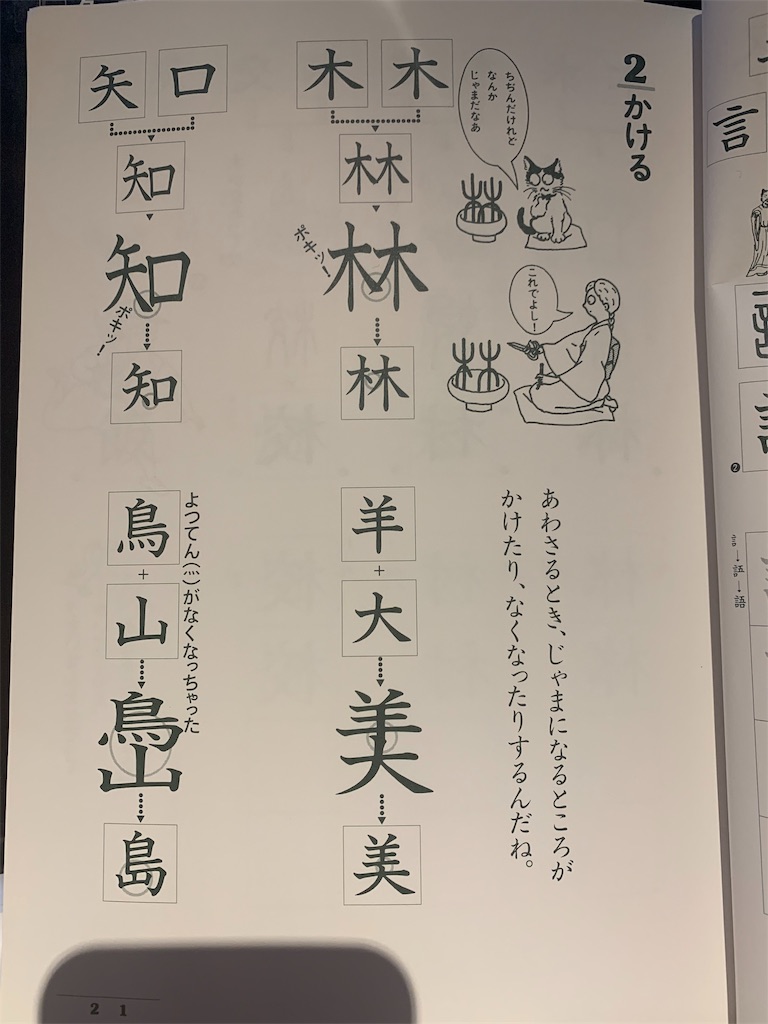 2 かける
ちぢんだけれど
なんか
じゃまだなあ
これでよし!
木 木
林
林
ポキッ!
林
口 矢
知
知
ポキッ!
知
あわさるとき、じゃまになるところが
かけたり、なくなったりするんだね。
羊
+
大
美
美
よつてん(灬)がなくなっちゃった
鳥
+
山
島
21
言
❷
言→語→語